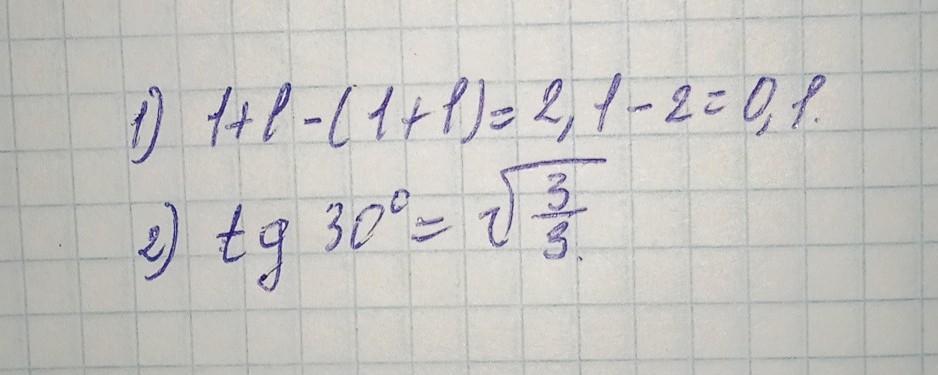 1) 1+1-(1+1)=2,1-2=0,1.
2) tg 30°=√(3/3).